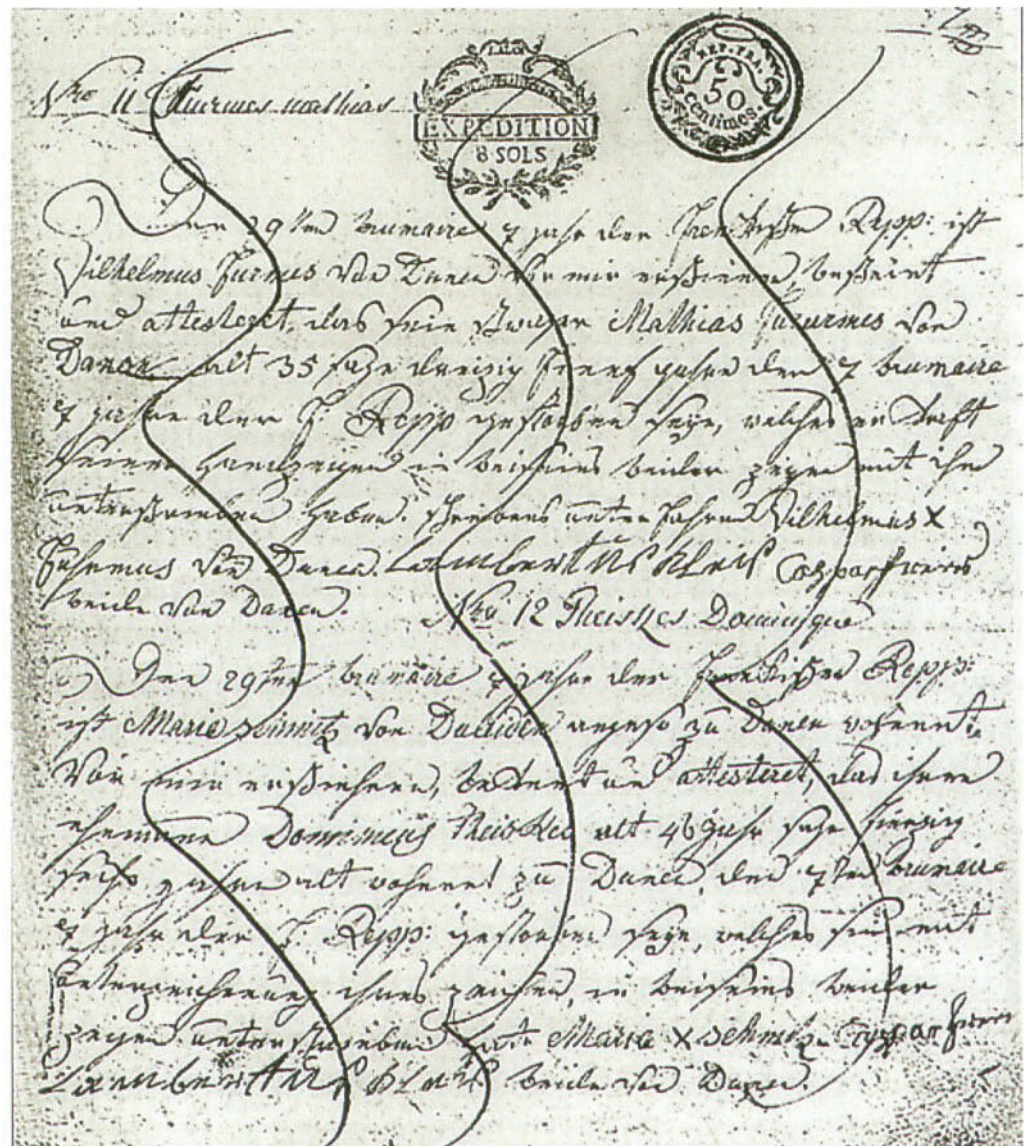 Nro 11 Furmes mathias
EXPEDITION
8 SOLS
REP. FRA.
50
centimes.
Den 29ten brumaire 7 jahr der Frenkischen Repp: ist
Vilhelmus Furmes von Danen vor mir erschienen, bekent
und attesteret, das sein Mathias Fururmes von
Danen alt 35 sage dreizig fienf jahre den 7 brumaire
7 jahre der F. Repp gestorben seye, welches er Kraft
seiner handzeigen in beiseins beider zeigen mit ihm
unterschrieben haben. Vilhelmus X
von Danen. Lambertus
beide von Danen.
Nro 12 Theiskes Dominique
Den 29ten brumaire 7 jahr der Frenkischen Repp:
ist Marie schmitz von zu Danen vohnent
Vor mir erschienen, bekent und attesteret, das ihren
ehemann Dominicus Theiskes alt 46 jahr sage fierzig
sechs jahre alt vohnent zu Danen, den 7ten brumaire
7 jahr der F. Repp: gestorben seye, welches sie mit
unterzeichnung ihres zeichen, in beiseins beider
zeigen unterschrieben hat. Marie X schmitz
Lambertus beide von Danen.